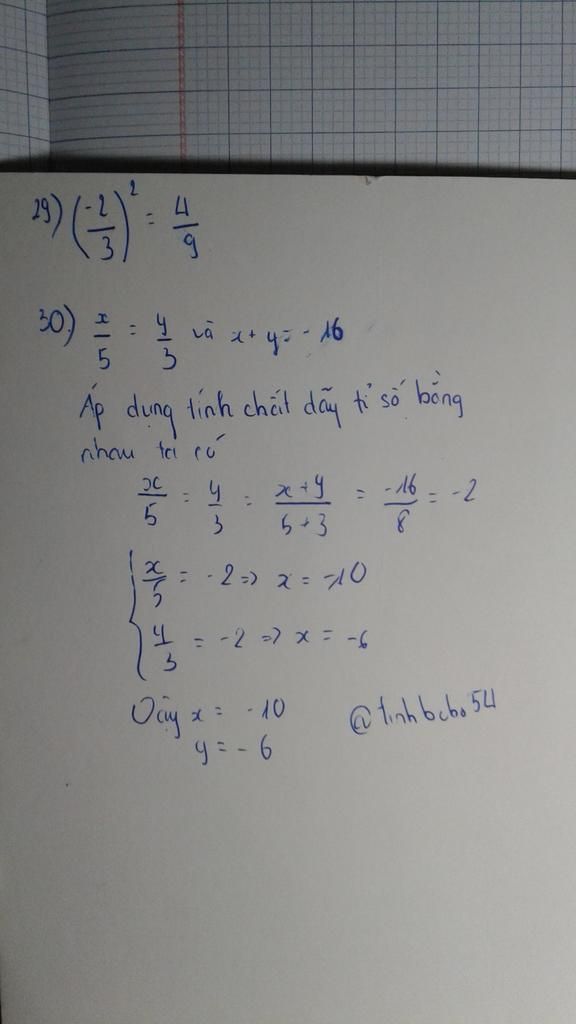 29) (-2/3)² = 4/9
30) x/5 = y/3 và x + y = -16
Áp dụng tính chất dãy tỉ số bằng
nhau ta có
x/5 = y/3 = x+y/5+3 = -16/8 = -2
x/5 = -2 => x = -10
y/3 = -2 => x = -6
Vậy x = -10
y = -6
@tinhbcbo54